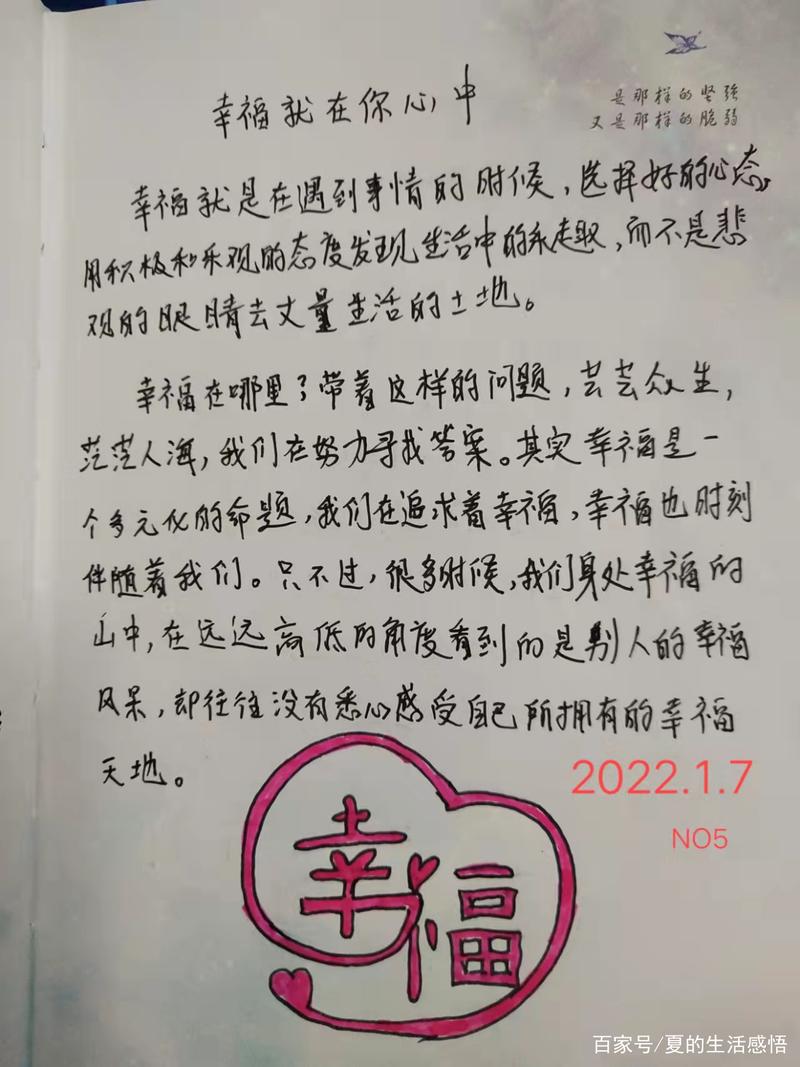 幸福就在你心中
是那样的坚强
又是那样的脆弱
幸福就是在遇到事情的时候，选择好的心态，
用积极和乐观的态度发现生活中的乐趣，而不是悲
观的眼睛去丈量生活的土地。
幸福在哪里？带着这样的问题，芸芸众生，
茫茫人海，我们在努力寻找答案。其实幸福是一
个多元化的命题，我们在追求着幸福，幸福也时刻
伴随着我们。只不过，很多时候，我们身处幸福的
山中，在远远高低的角度看到的是别人的幸福
风景，却往往没有悉心感受自己所拥有的幸福
天地。
2022.1.7
NO5
幸福
百家号/夏的生活感悟